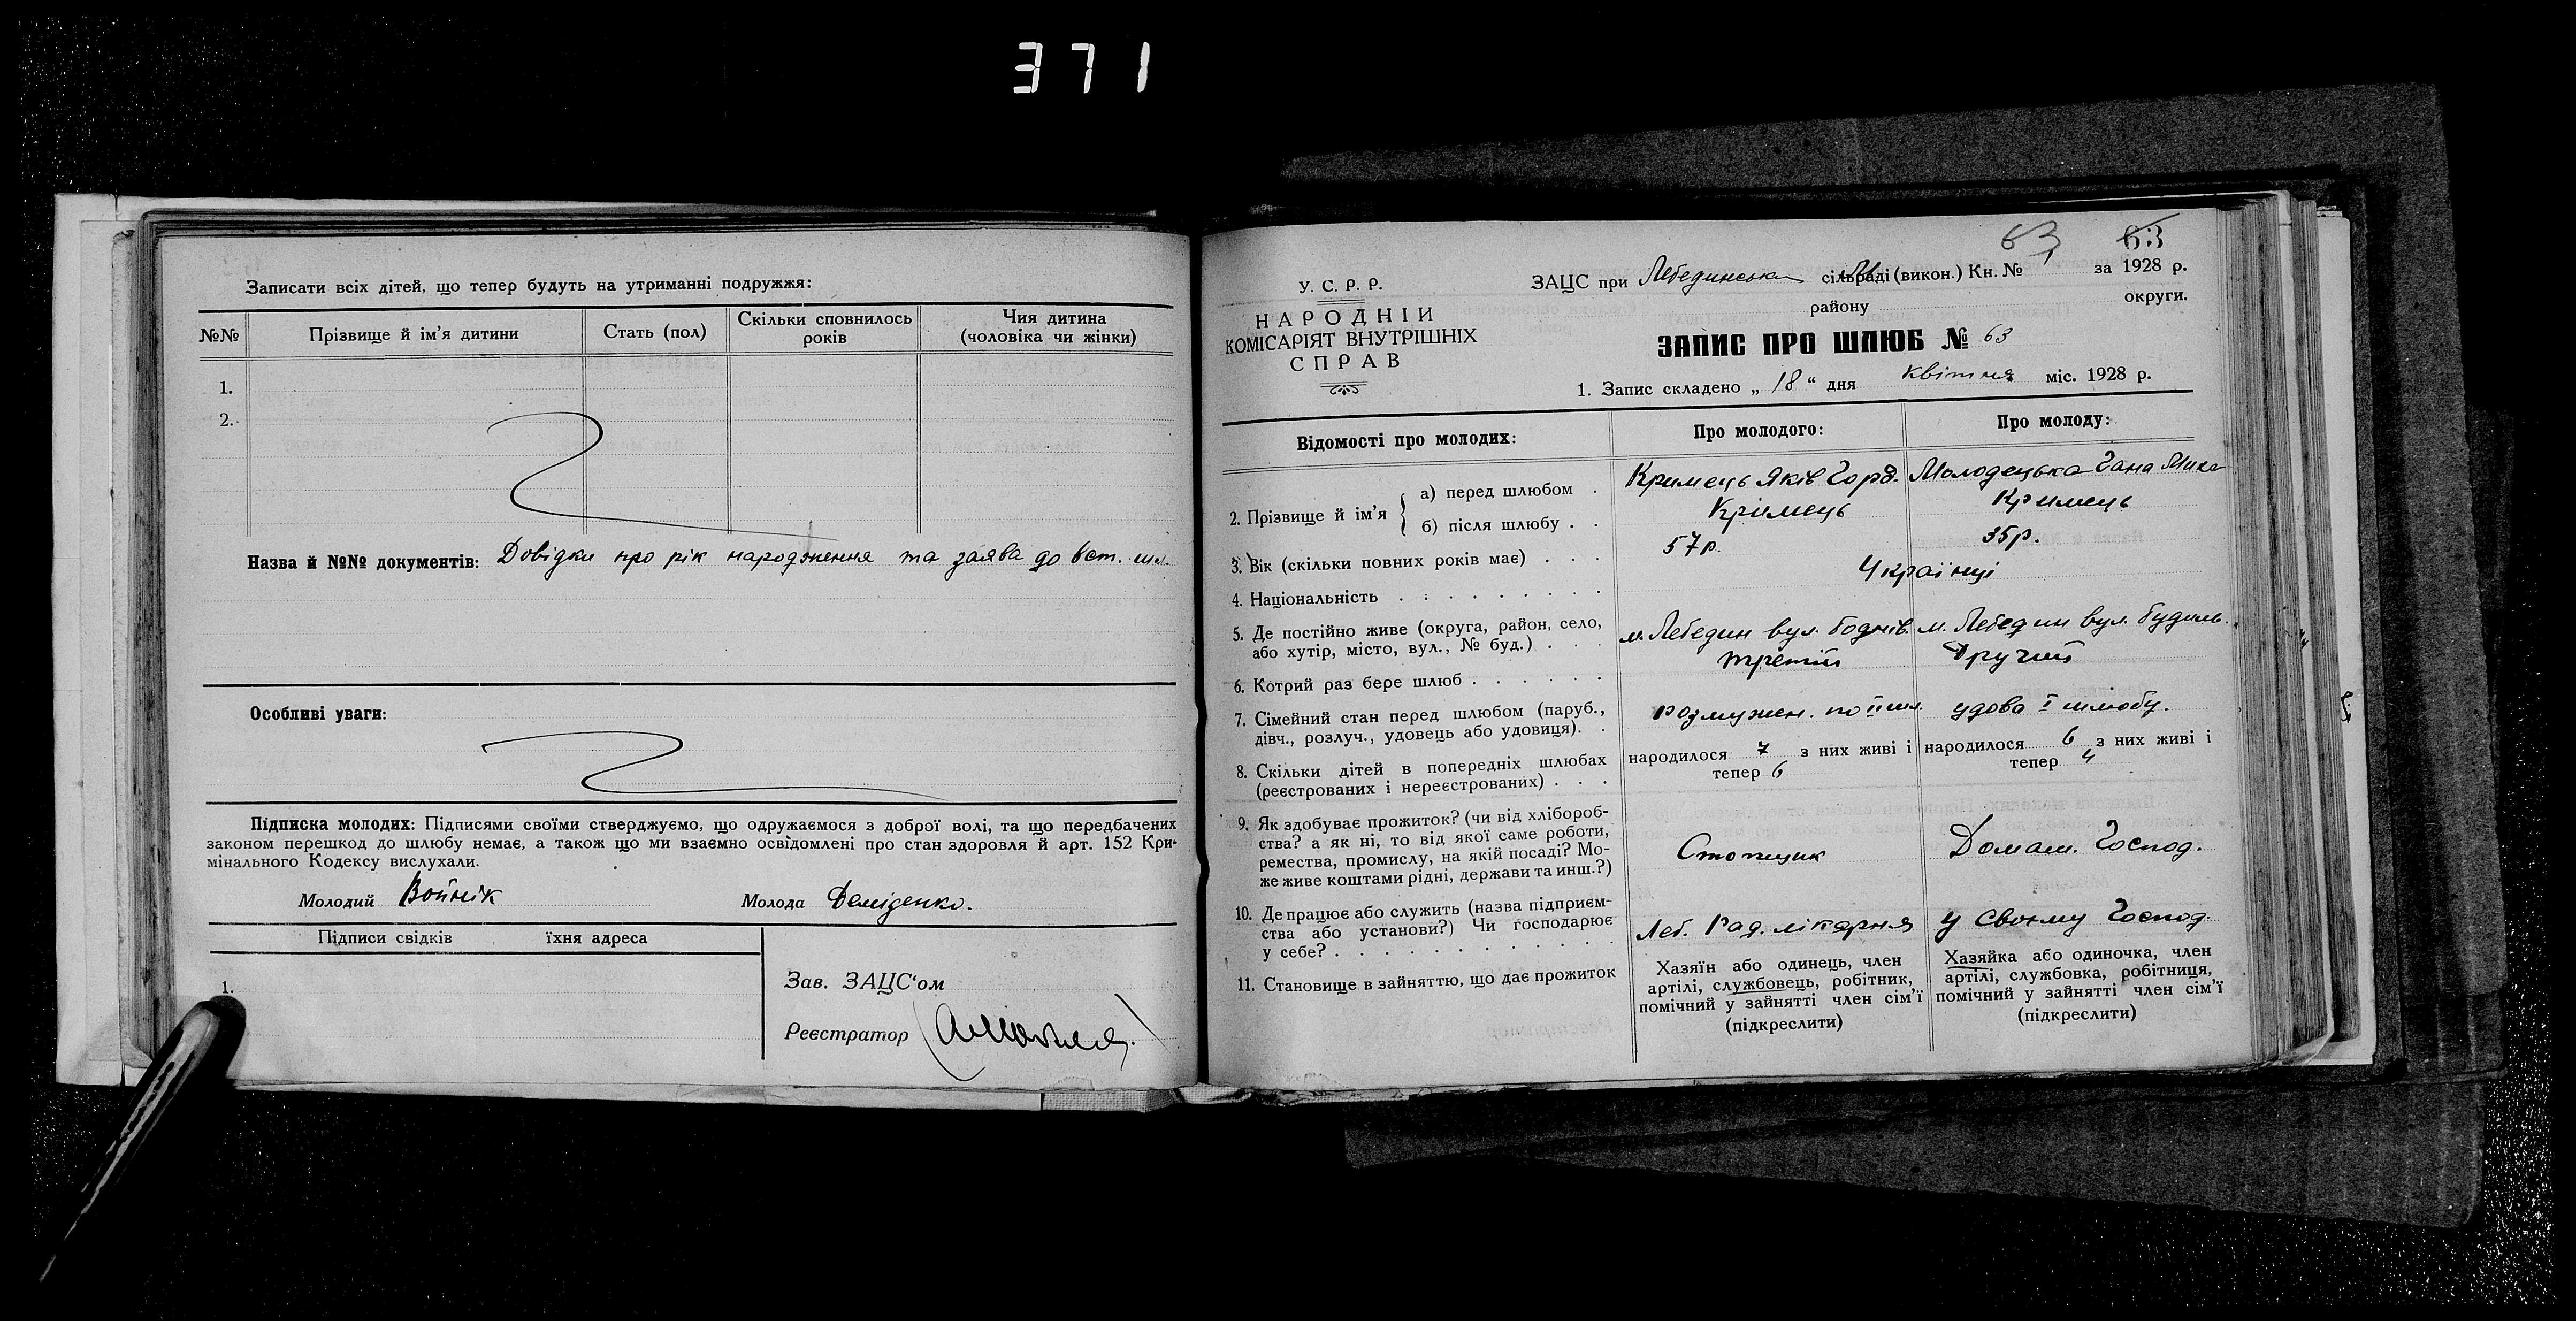 371
Записати всіх дітей, що тепер будуть на утриманні подружжя:
№№ Прізвище й ім'я дитини Стать (пол) Скільки сповнилось років Чия дитина (чоловіка чи жінки)
1.
2.
Назва й №№ документів: Довідки про рік народження та заява до вст. шл.
Особливі уваги:
Підписка молодих: Підписями своїми стверджуємо, що одружаємося з доброї волі, та що передбачених
законом перешкод до шлюбу немає, а також що ми взаємно освідомлені про стан здоровля й арт. 152 Кри-
мінального Кодексу вислухали.
Молодий Войнік Молода Деміденко.
Підписи свідків їхня адреса
1.
Зав. ЗАЦС'ом
Реєстратор
63 63
У. С. Р. Р.
НАРОДНІЙ
КОМІСАРІЯТ ВНУТРІШНІХ
СПРАВ
ЗАЦС при Лебединська сільраді (викон.) Кн. № за 1928 р.
району округи.
ЗАПИС ПРО ШЛЮБ № 63
1. Запис складено „ 18 “ дня квітня міс. 1928 р.
Відомості про молодих: Про молодого: Про молоду:
2. Прізвище й ім'я
а) перед шлюбом . Кримець Яків Горд. Молодецька Гана Мика
б) після шлюбу . . Крімець Кримець
3. Вік (скільки повних років має) . . . 57р. 35р.
4. Національність . . . . . . . . . Українці
5. Де постійно живе (округа, район, село,
або хутір, місто, вул., № буд.) . . . м. Лебедин вул. м. Лебедин вул. Будиль.
6. Котрий раз бере шлюб . . . . . . третій Другий
7. Сімейний стан перед шлюбом (паруб.,
дівч., розлуч., удовець або удовиця). . Розлучен. по II шл. удова I шлюбу.
8. Скільки дітей в попередніх шлюбах
(реєстрованих і нереєстрованих) . . .
народилося 7 з них живі і
тепер 6
народилося 6 з них живі і
тепер 4
9. Як здобуває прожиток? (чи від хлібороб-
ства? а як ні, то від якої саме роботи,
ремества, промислу, на якій посаді? Мо-
же живе коштами рідні, держави та инш.?)
Стопщик Домаш. Господ.
10. Де працює або служить (назва підприєм-
ства або установи?) Чи господарює
у себе? . . . . . . . . . .
Леб. Рад. лікарня У своєму Господ.
11. Становище в зайняттю, що дає прожиток
Хазяїн або одинець, член
артілі, службовець, робітник,
помічний у зайнятті член сім'ї
(підкреслити)
Хазяйка або одиночка, член
артілі, службовка, робітниця,
помічний у зайнятті член сім'ї
(підкреслити)